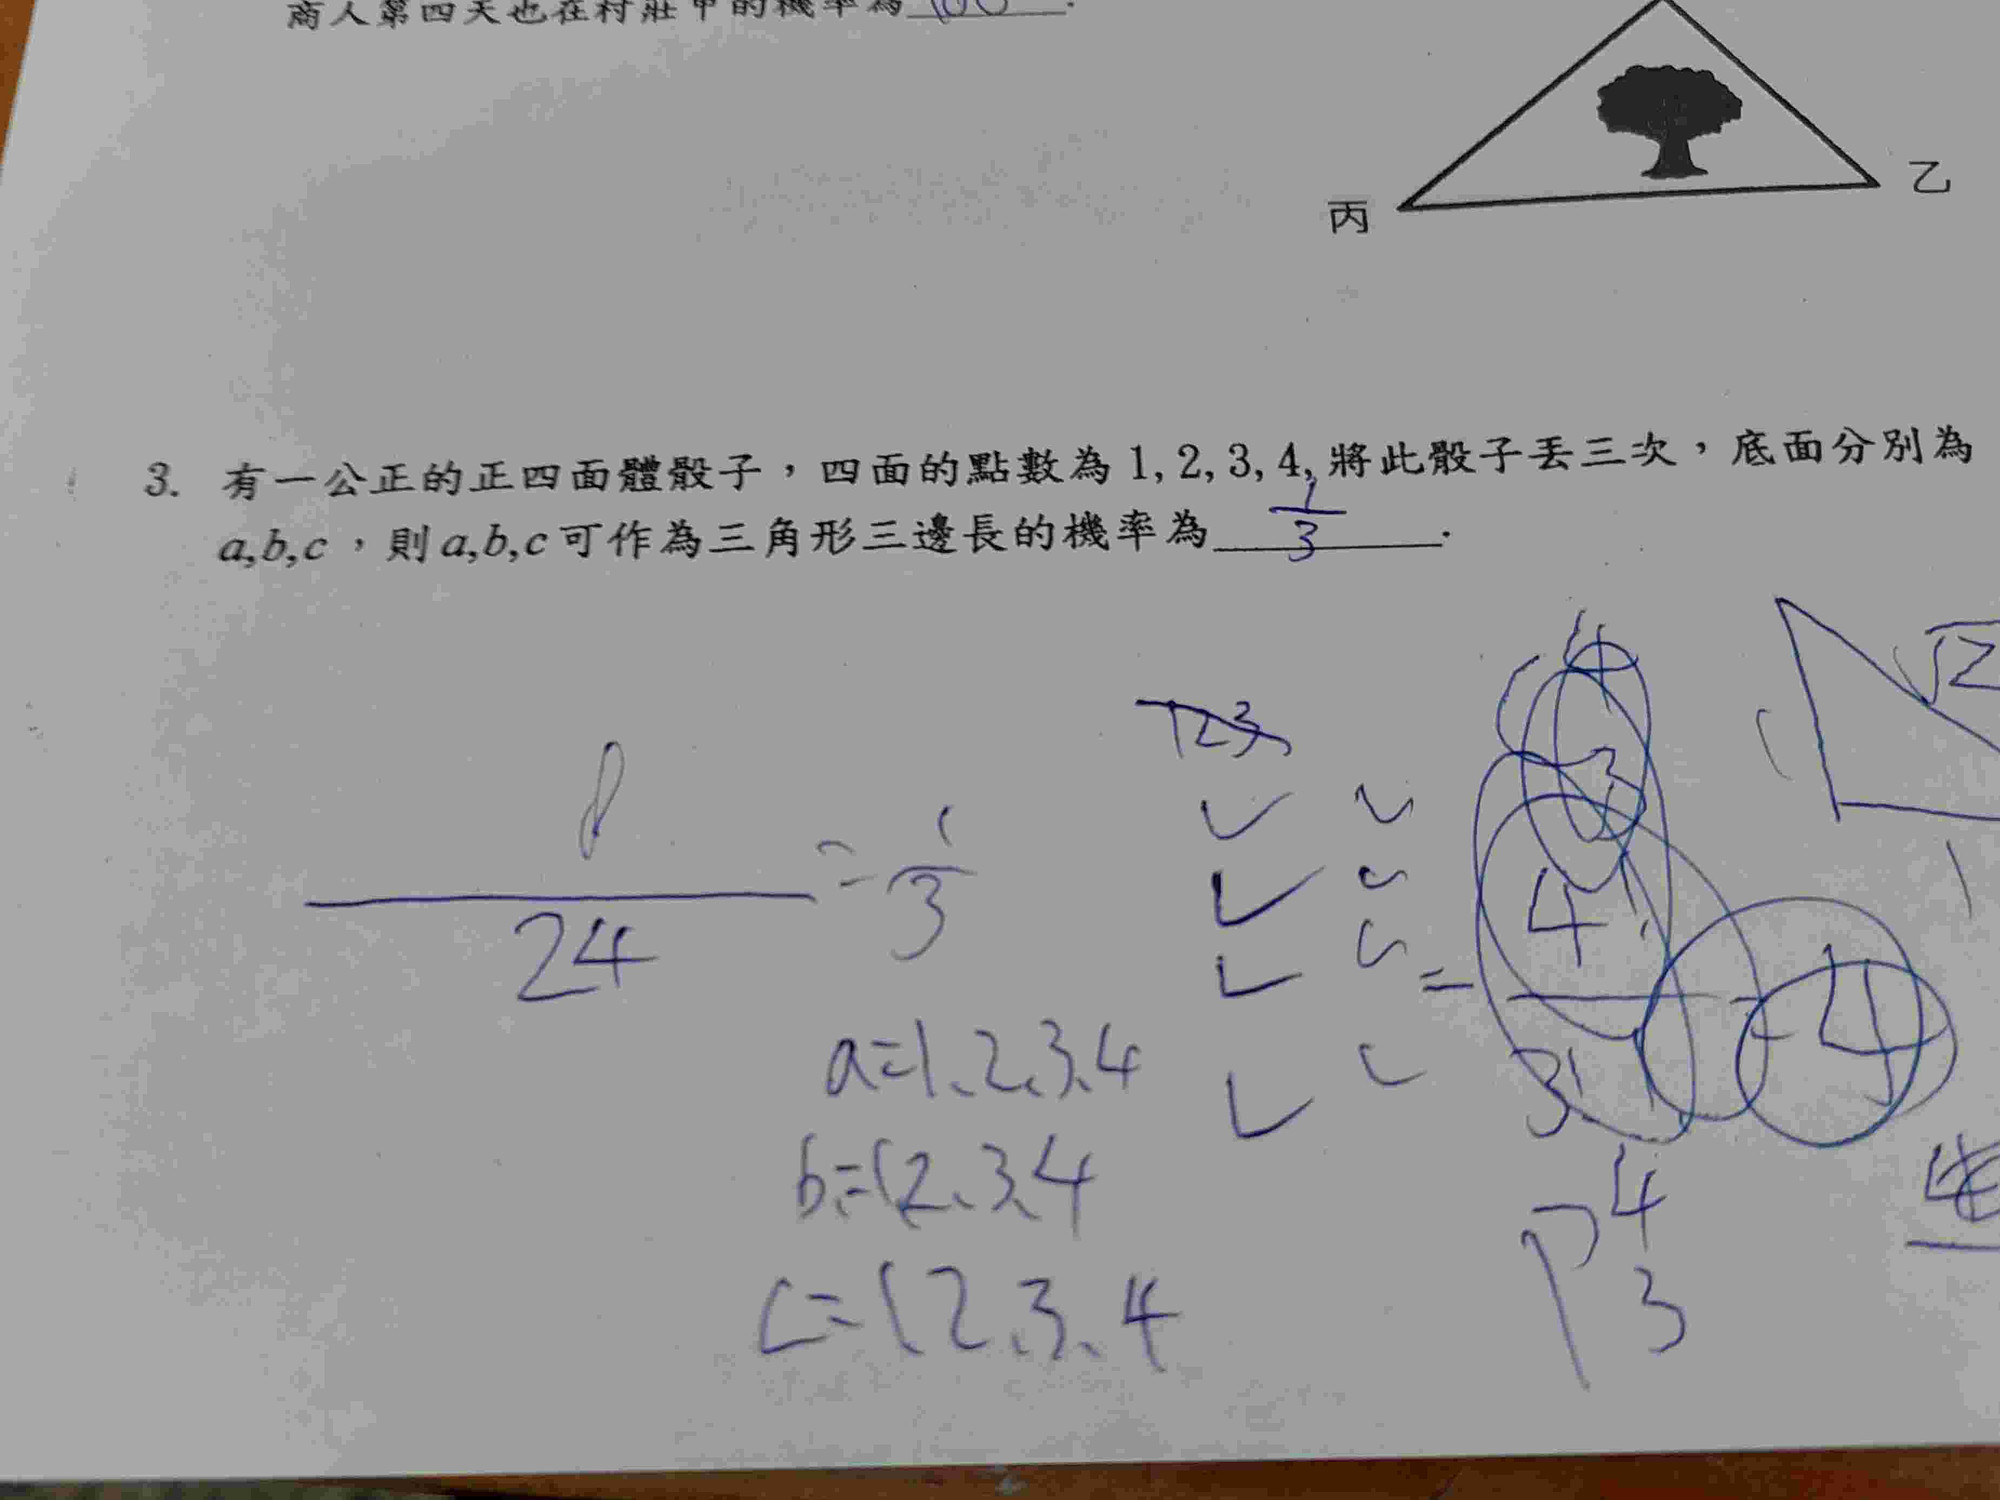 商人第四天也在村莊甲的機率為
丙
乙
3. 有一公正的正四面體骰子，四面的點數為 1, 2, 3, 4, 將此骰子丟三次，底面分別為
a,b,c，則 a,b,c 可作為三角形三邊長的機率為 1/3 .
123
√2
1
24
= 1/3
4
3
4
=
4
3
a=1、2、3、4
b=1 2、3、4
c=1 2、3、4
P 4 3